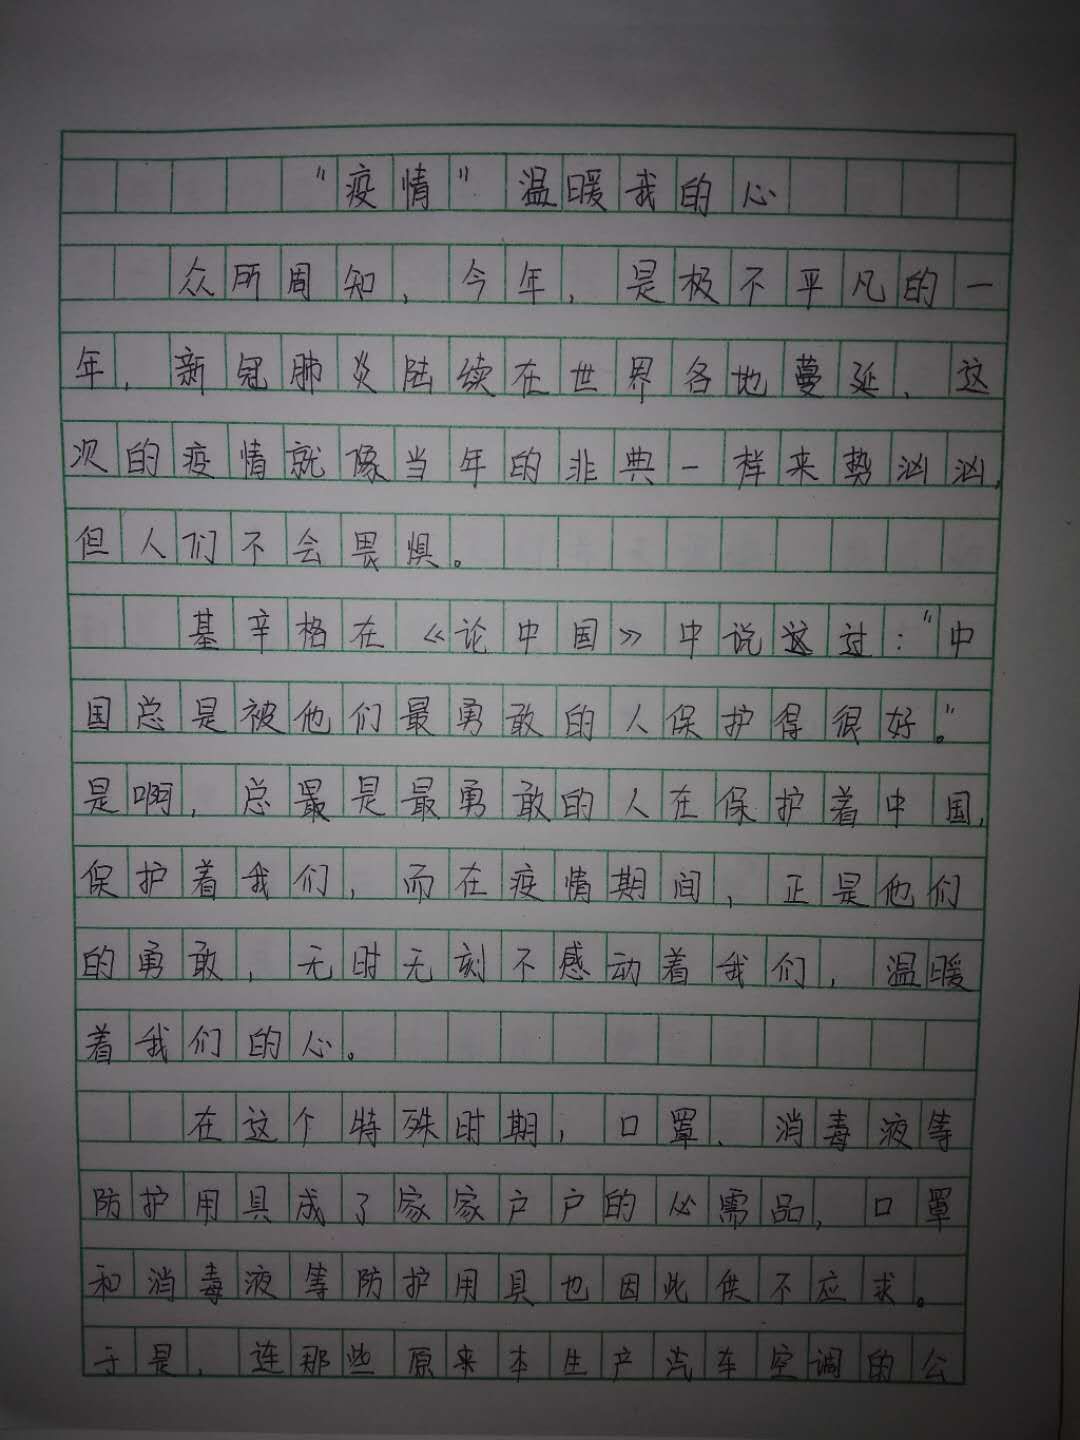 “疫情”温暖我的心
众所周知，今年，是极不平凡的一
年，新冠肺炎陆续在世界各地蔓延，这
次的疫情就像当年的非典一样来势汹汹，
但人们不会畏惧。
基辛格在《论中国》中说这过：“中
国总是被他们最勇敢的人保护得很好。”
是啊，总最是最勇敢的人在保护着中国，
保护着我们，而在疫情期间，正是他们
的勇敢，无时无刻不感动着我们，温暖
着我们的心。
在这个特殊时期，口罩、消毒液等
防护用具成了家家户户的必需品，口罩
和消毒液等防护用具也因此供不应求。
于是，连那些原来本生产汽车空调的公